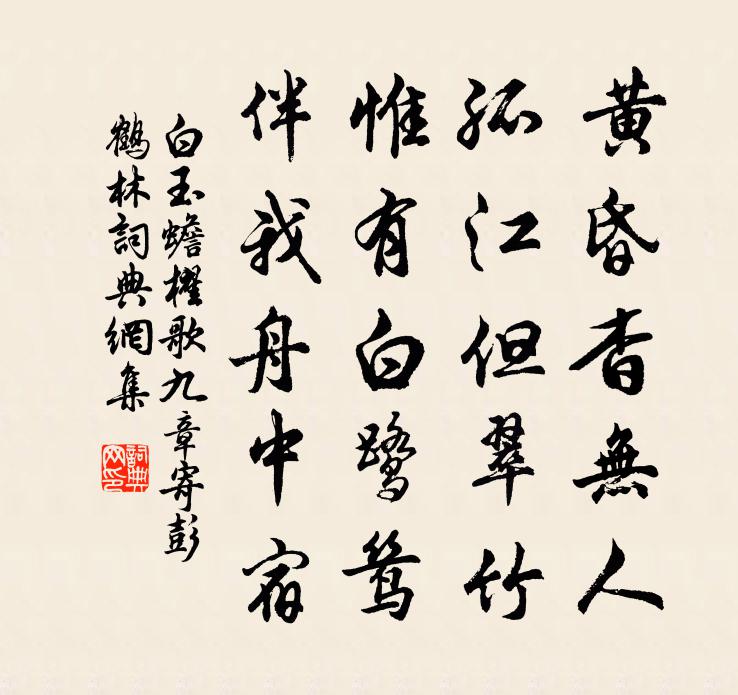 黃昏杳無人
孤江但翠竹
惟有白鷺鶿
伴我舟中宿
白玉蟾櫂歌九章寄彭
鶴林詞典網集
詞典
网印